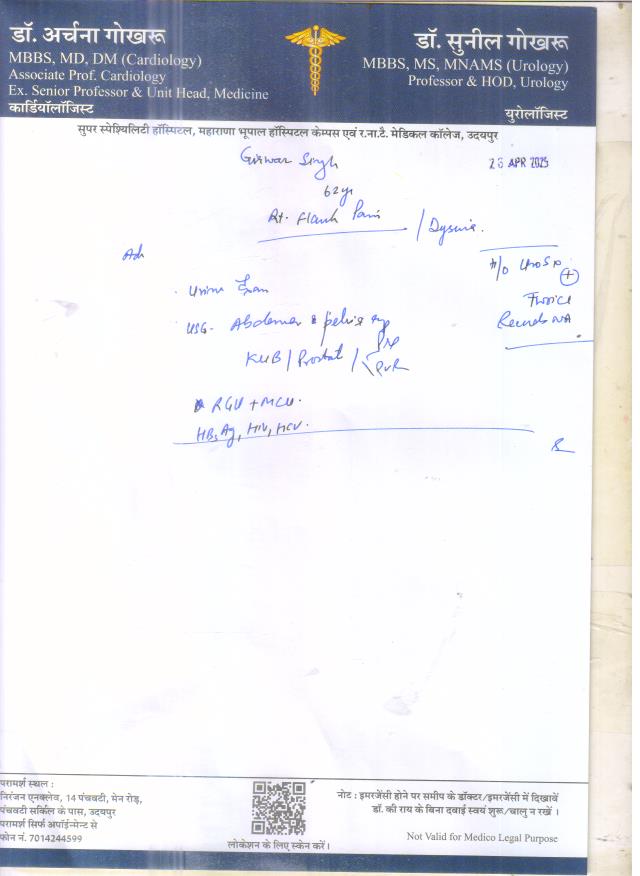 डॉ. अर्चना गोखरू
MBBS, MD, DM (Cardiology)
Associate Prof. Cardiology
Ex. Senior Professor & Unit Head, Medicine
कार्डियॉलॉजिस्ट
डॉ. सुनील गोखरू
MBBS, MS, MNAMS (Urology)
Professor & HOD, Urology
युरोलॉजिस्ट
सुपर स्पेश्यिलिटी हॉस्पिटल, महाराणा भूपाल हॉस्पिटल केम्पस एवं र.ना.टै. मेडिकल कॉलेज, उदयपुर
Girwar Singh
23 APR 2025
62 yr
Rt. Flank Pain / Dysuria.
Adv
H/o
+
Twice
Records NA
Urine Exam
USG- Abdomen & pelvis
KUB / Prostate / Pre
PVR
RGU + MCU.
HBsAg, HIV, HCV.
परामर्श स्थल :
निरंजन एनक्लेव, 14 पंचवटी, मेन रोड़,
पंचवटी सर्किल के पास, उदयपुर
परामर्श सिर्फ अपॉईन्मेन्ट से
फोन नं. 7014244599
लोकेशन के लिए स्केन करें।
नोट : इमरजेंसी होने पर समीप के डॉक्टर/इमरजेंसी में दिखावें
डॉ. की राय के बिना दवाई स्वयं शुरू/चालु न रखें ।
Not Valid for Medico Legal Purpose